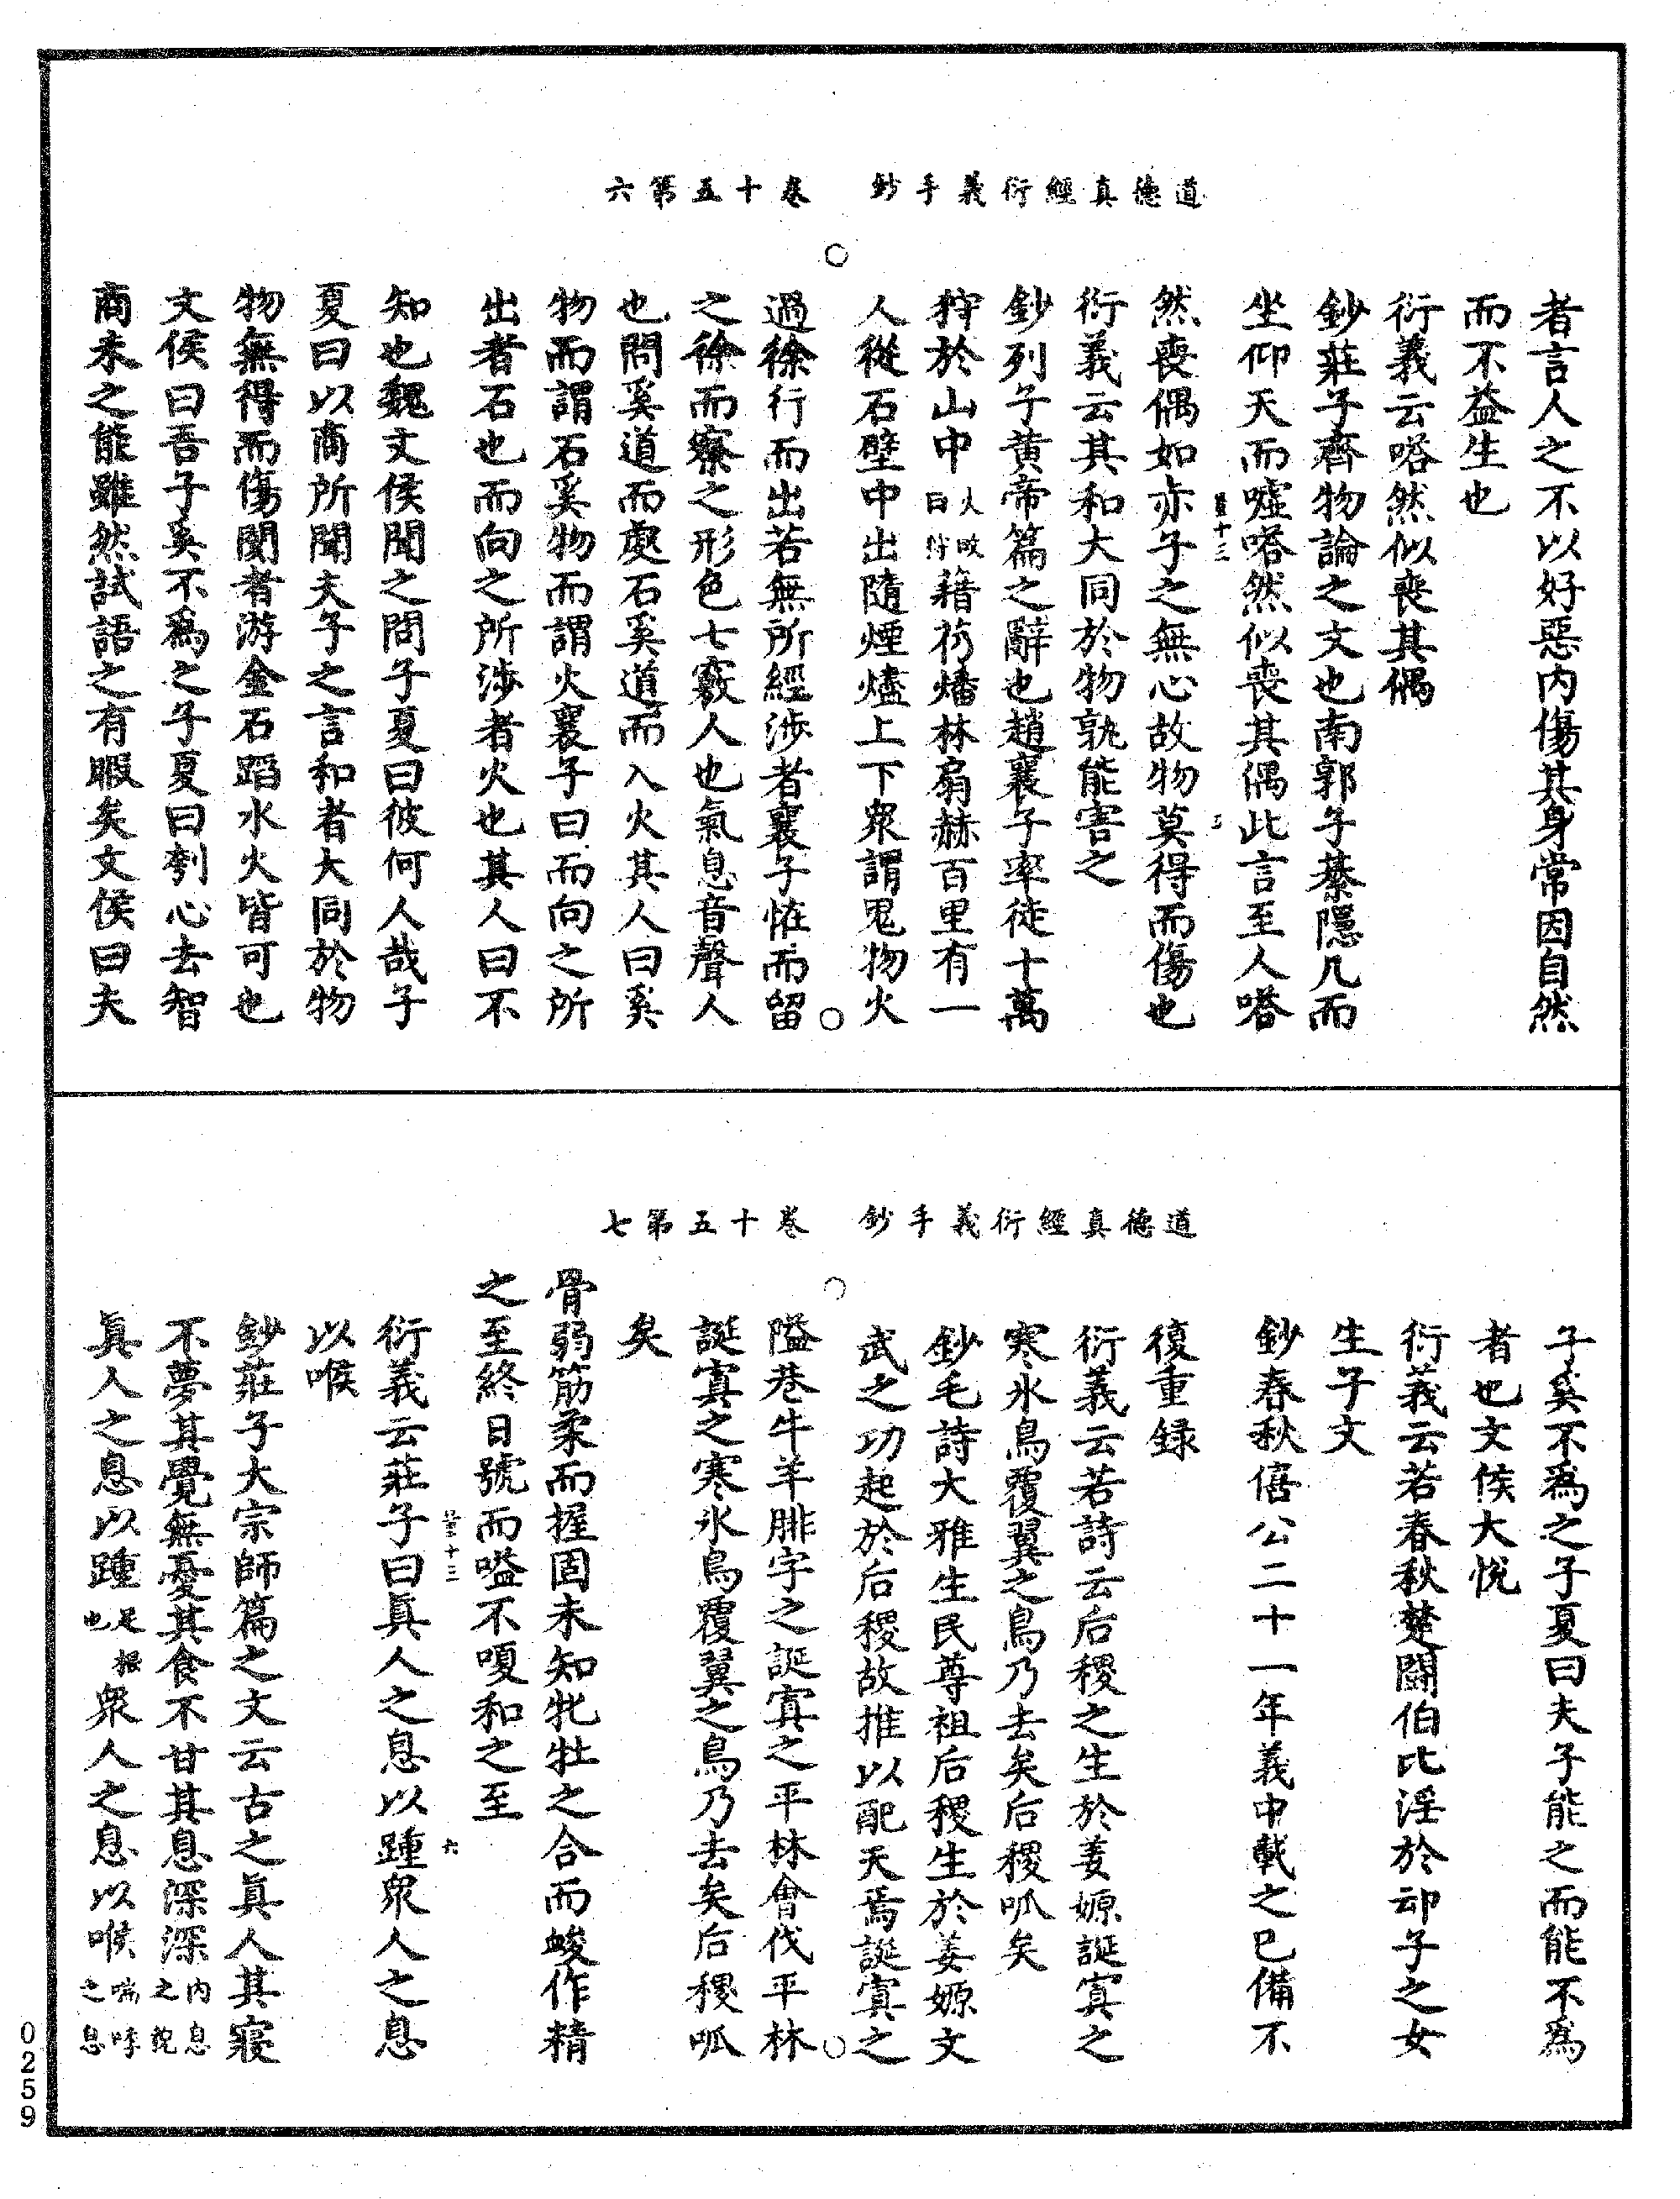 道德真經衍義手鈔　卷十五第六
者言人之不以好惡内傷其身常因自然
而不益生也
衍義云嗒然似喪其偶
鈔莊子齊物論之文也南郭子綦隱几而
坐仰天而嘘嗒然似喪其偶此言至人嗒
然喪偶如赤子之無心故物莫得而傷也
衍義云其和大同於物孰能害之
鈔列子黄帝篇之辭也趙襄子率徒十萬
狩於山中火畋曰狩藉艿燔林扇赫百里有一
人從石壁中出隨煙燼上下衆謂鬼物火
過徐行而出若無所經涉者襄子怪而留
之徐而察之形色七竅人也氣息音聲人
也問奚道而處石奚道而入火其人曰奚
物而謂石奚物而謂火襄子曰而向之所
出者石也而向之所涉者火也其人曰不
知也魏文侯聞之問子夏曰彼何人哉子
夏曰以商所聞夫子之言和者大同於物
物無得而傷閡者游金石蹈水火皆可也
文侯曰吾子奚不爲之子夏曰刳心去智
商未之能雖然試語之有暇矣文侯曰夫
道德真經衍義手鈔　卷十五第七
子奚不爲之子夏曰夫子能之而能不爲
者也文侯大悅
衍義云若春秋楚鬪伯比淫於䢵子之女
生子文
鈔春秋僖公二十一年義中載之已備不
復重録
衍義云若詩云后稷之生於姜嫄誕寘之
寒氷鳥覆翼之鳥乃去矣后稷呱矣
鈔毛詩大雅生民尊祖后稷生於姜嫄文
武之功起於后稷故推以配天焉誕寘之
隘巷牛羊腓字之誕寘之平林會伐平林
誕寘之寒氷鳥覆翼之鳥乃去矣后稷呱
矣
骨弱筋柔而握固未知牝牡之合而㕙作精
之至終日號而嗌不嗄和之至
衍義云莊子曰眞人之息以踵衆人之息
以喉
鈔莊子大宗師篇之文云古之眞人其寢
不夢其覺無憂其食不甘其息深深内息之貌
眞人之息以踵足根也衆人之息以喉喘哮之息
0259